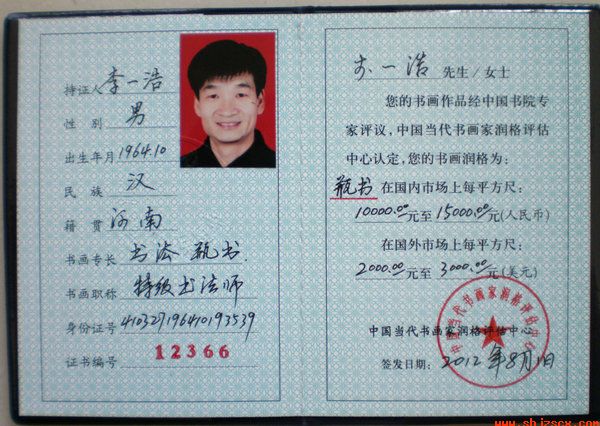 持证人 李一浩
性 别 男
出生年月 1964.10
民 族 汉
籍 贯 河南
书画专长 书法 瓶书
书画职称 特级书法师
身份证号
证书编号 12366
李一浩 先生/女士
您的书画作品经中国书院专
家评议，中国当代书画家润格评估
中心认定，您的书画润格为：
瓶书 在国内市场上每平方尺：
10000.00元至15000.00元(人民币)
在国外市场上每平方尺：
2000.00元至3000.00元(美元)
中国当代书画家润格评估中心
签发日期：2012年8月1日
中国当代书画家润格评估中心
www.shjzscx.com